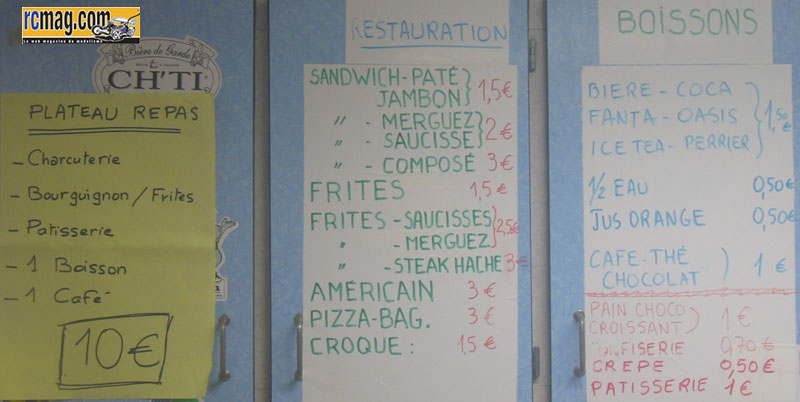 rcmag.com
le web magazine du modelisme
Bière de Garde
CH'TI
PLATEAU REPAS
- Charcuterie
- Bourguignon / Frites
- Patisserie
- 1 Boisson
- 1 Café
10€
RESTAURATION
SANDWICH-PATÉ
JAMBON} 1,5€
" - MERGUEZ
" - SAUCISSE} 2€
" - COMPOSÉ 3€
FRITES 1,5€
FRITES - SAUCISSES
" - MERGUEZ} 2,5€
" - STEAK HACHE 3€
AMÉRICAIN 3€
PIZZA-BAG. 3€
CROQUE : 1,5€
BOISSONS
BIERE - COCA
FANTA - OASIS
ICE TEA - PERRIER} 1,50€
1/2 EAU 0,50€
JUS ORANGE 0,50€
CAFE-THÉ
CHOCOLAT) 1€
PAIN CHOCO
CROISSANT) 1€
CONFISERIE 0,70€
CREPE 0,50€
PATISSERIE 1€